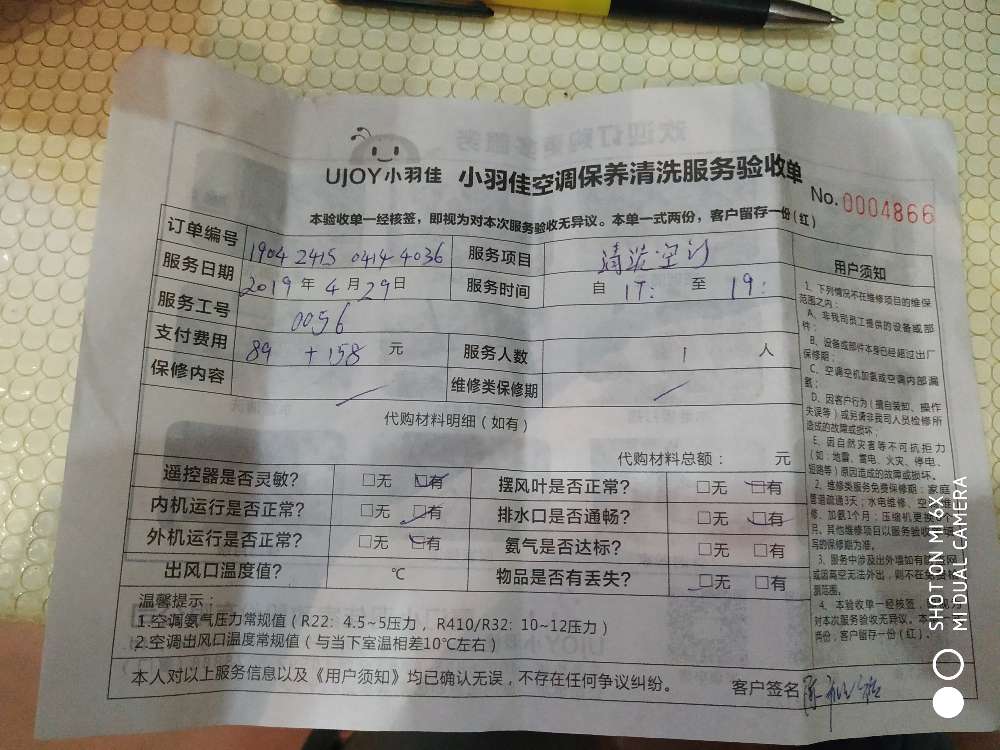 UJOY小羽佳 小羽佳空调保养清洗服务验收单
No. 0004866
本验收单一经核签，即视为对本次服务验收无异议。本单一式两份，客户留存一份（红）
订单编号 1904 2415 0414 4036 服务项目 清洗空调
服务日期 2019 年 4 月 29 日 服务时间 自 17: 至 19:
服务工号 0056
支付费用 89 +158 元 服务人数 1 人
保修内容 维修类保修期
代购材料明细（如有）
代购材料总额： 元
遥控器是否灵敏? □无 □有 摆风叶是否正常? □无 □有
内机运行是否正常? □无 □有 排水口是否通畅? □无 □有
外机运行是否正常? □无 □有 氨气是否达标? □无 □有
出风口温度值? ℃ 物品是否有丢失? □无 □有
温馨提示：
1.空调氨气压力常规值（R22: 4.5~5压力， R410/R32: 10~12压力）
2.空调出风口温度常规值（与当下室温相差10℃左右）
本人对以上服务信息以及《用户须知》均已确认无误，不存在任何争议纠纷。
客户签名 陈
用户须知
1、下列情况不在维修项目的维保
范围之内：
A、非我司员工提供的设备或部
件；
B、设备或部件本身已经超过出厂
保修期；
C、空调空机加氨或空调内部漏
氨；
D、因客户行为（擅自装卸、操作
失误等）或另请非我司人员检修所
造成的故障或损坏；
E、因自然灾害等不可抗拒力
（如：地震、雷电、火灾、停电、
短路等）原因造成的故障或损坏。
2、维修类服务免费保修期：家庭
管道疏通3天；水电维修、空
修、加氨1个月；压缩机更换
月。其他维修项目以服务验收
写的保修期为准。
3、服务中涉及出外墙如有
或因高空无法外出，则不在
测范围。
4、本验收单一经核签，
对本次服务验收无异议。本
两份，客户留存一份（红）。
SHOT ON MI 6X
MI DUAL CAMERA